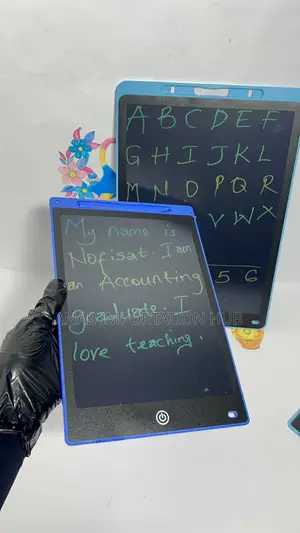 A B C D E F
G H I J K L
M N O P Q R
V W X
5 6
My name is
Nofisat. I am
an Accounting
graduate. I
love teaching.
ANAS IMPORTATION HUB